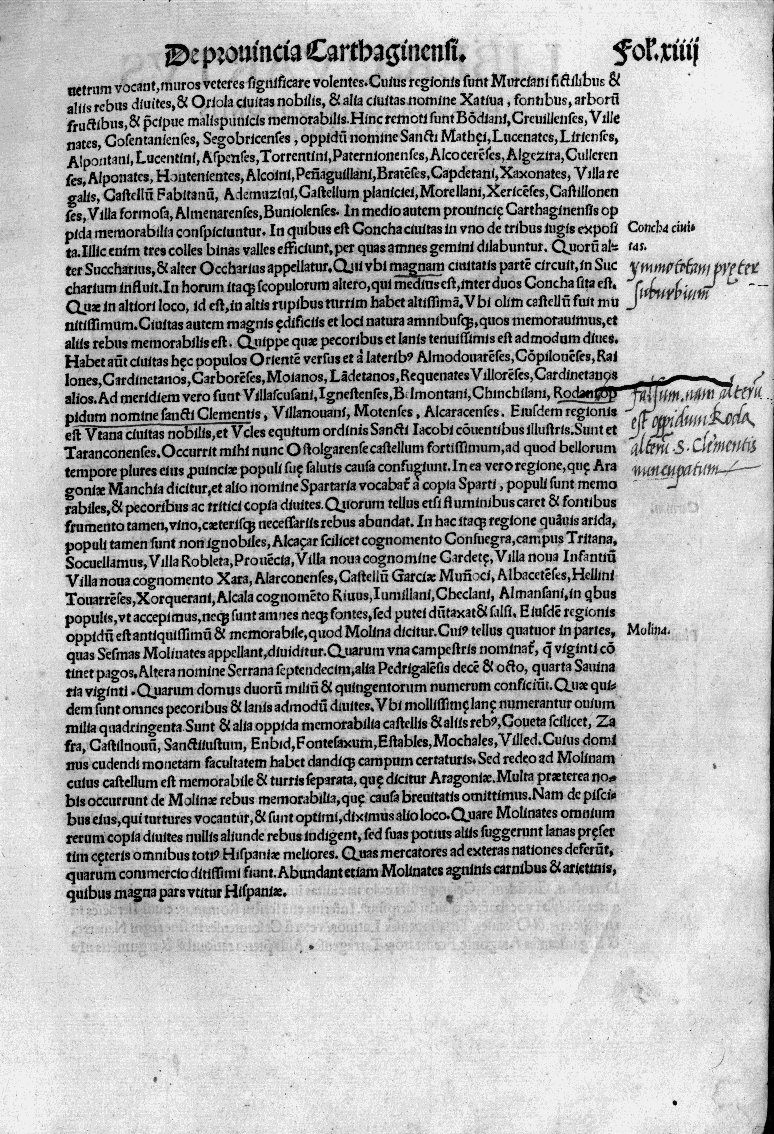 De prouincia Carthaginensi. Fol. xiiij
uetrum vocant, muros veteres significare volentes. Cuius regionis sunt Murciani fictilibus &
aliis rebus diuites, & Oriola ciuitas nobilis, & alia ciuitas nomine Xatiua, fontibus, arborū
fructibus, & p̄cipue malispunicis memorabilis. Hinc remoti sunt Bōdiani, Creuillenses, Ville
nates, Cosentanienses, Segobricenses, oppidū nomine Sancti Mathęi, Lucenates, Lirienses,
Alpontani, Lucentini, Aspenses, Torrentini, Paternionenses, Alcocerēses, Algezira, Culleren
ses, Alponates, Hontenientes, Alcoini, Peñaguillani, Bratēses, Capdetani, Xaxonates, Villa re
galis, Castellū Fabitanū, Ademuzini, Castellum planiciei, Morellani, Xericēses, Castillonen
ses, Villa formosa, Almenarenses, Buniolenses. In medio autem prouincię Carthaginensis op
pida memorabilia conspiciuntur. In quibus est Concha ciuitas in vno de tribus iugis exposi
ta. Illic enim tres colles binas valles efficiunt, per quas amnes gemini dilabuntur. Quorū al-
ter Succharius, & alter Occharius appellatur. Qui vbi magnam ciuitatis partē circuit, in Suc
charium influit. In horum itaq; scopulorum altero, qui medius est, inter duos Concha sita est.
Quæ in altiori loco, id est, in altis rupibus turrim habet altissimā. Vbi olim castellū fuit mu
nitissimum. Ciuitas autem magnis ędificiis et loci natura amnibusq;, quos memorauimus, et
aliis rebus memorabilis est. Quippe quæ pecoribus et lanis tenuissimis est admodum diues.
Habet aūt ciuitas hęc populos Orientē versus et à lateribꝰ Almodouarēses, Cōpilonēses, Rai
lones, Cardinetanos, Carborēses, Moianos, Lādetanos, Requenates Villorēses, Cardinetanos
alios. Ad meridiem vero sunt Villascusani, Ignestenses, Belmontani, Chinchilani, Rodani, op
pidum nomine sancti Clementis, Villanouani, Motenses, Alcaracenses. Eiusdem regionis
est Vtana ciuitas nobilis, et Vcles equitum ordinis Sancti Iacobi cōuentibus illustris. Sunt et
Taranconenses. Occurrit mihi nunc Ostolgarense castellum fortissimum, ad quod bellorum
tempore plures eius ꝓuinciæ populi suę salutis causa confugiunt. In ea vero regione, quę Ara
goniæ Manchia dicitur, et alio nomine Spartaria vocabaṫ à copia Sparti, populi sunt memo
rabiles, & pecoribus ac tritici copia diuites. Quorum tellus etsi fluminibus caret & fontibus
frumento tamen, vino, cæterisq; necessariis rebus abundat. In hac itaq; regione quāuis arida,
populi tamen sunt non ignobiles, Alcaçar scilicet cognomento Consuegra, campus Tritana,
Socuellamus, Villa Robleta, Prouēcia, Villa noua cognomine Gardetę, Villa noua Infantiū
Villa noua cognomento Xara, Alarconenses, Castellū Garciæ Muñoci, Albacetēses, Hellini
Touarrēses, Xorquerani, Alcala cognomēto Riuus, Iumillani, Checlani, Almansani, in qbus
populis, vt accepimus, neq; sunt amnes neq; fontes, sed putei dūtaxat & salsi. Eiusdē regionis
oppidū est antiquissimū & memorabile, quod Molina dicitur. Cuiꝰ tellus quatuor in partes,
quas Sesmas Molinates appellant, diuiditur. Quarum vna campestris nominaṫ, q̄ viginti cō
tinet pagos. Altera nomine Serrana septendecim, alia Pedrigalēsis decē & octo, quarta Sauina
ria viginti. Quarum domus duorū miliū & quingentorum numerum conficiūt. Quæ qui-
dem sunt omnes pecoribus & lanis admodū diuites. Vbi mollissimę lanę numerantur ouium
milia quadringenta. Sunt & alia oppida memorabilia castellis & aliis rebꝰ, Goueta scilicet, Za
fra, Castilnouū, Sanctiiustum, Enbid, Fontesaxum, Estables, Mochales, Villed. Cuius domi
nus cudendi monetam facultatem habet dandiq; campum certaturis. Sed redeo ad Molinam
cuius castellum est memorabile & turris separata, quę dicitur Aragoniæ. Multa præterea no-
bis occurrunt de Molinæ rebus memorabilia, quę causa breuitatis omittimus. Nam de pisci-
bus eius, qui turtures vocantur, & sunt optimi, diximus alio loco. Quare Molinates omnium
rerum copia diuites nullis aliunde rebus indigent, sed suas potius aliis suggerunt lanas pręser
tim cęteris omnibus totiꝰ Hispaniæ meliores. Quas mercatores ad exteras nationes deferūt,
quarum commercio ditissimi fiant. Abundant etiam Molinates agninis carnibus & arietinis,
quibus magna pars vtitur Hispaniæ.
Concha ciui-
tas.
ymmo totam pręter
suburbium
falsum. nam alterū
est oppidum Roda
alterū S. Clemētis
nuncupatum
Molina.